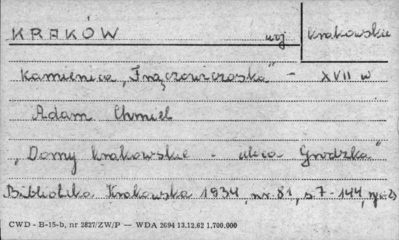 KRAKÓW woj krakowskie
Kamienica „Frączowiczowska" - XVII w
Adam Chmiel
„Domy krakowskie - ulica Grodzka"
Biblioteka Krakowska 1934, nr. 81, s 7-144,
CWD - B-15-b, nr 2827/ZW/P — WDA 2694 13.12.62 1,700.000